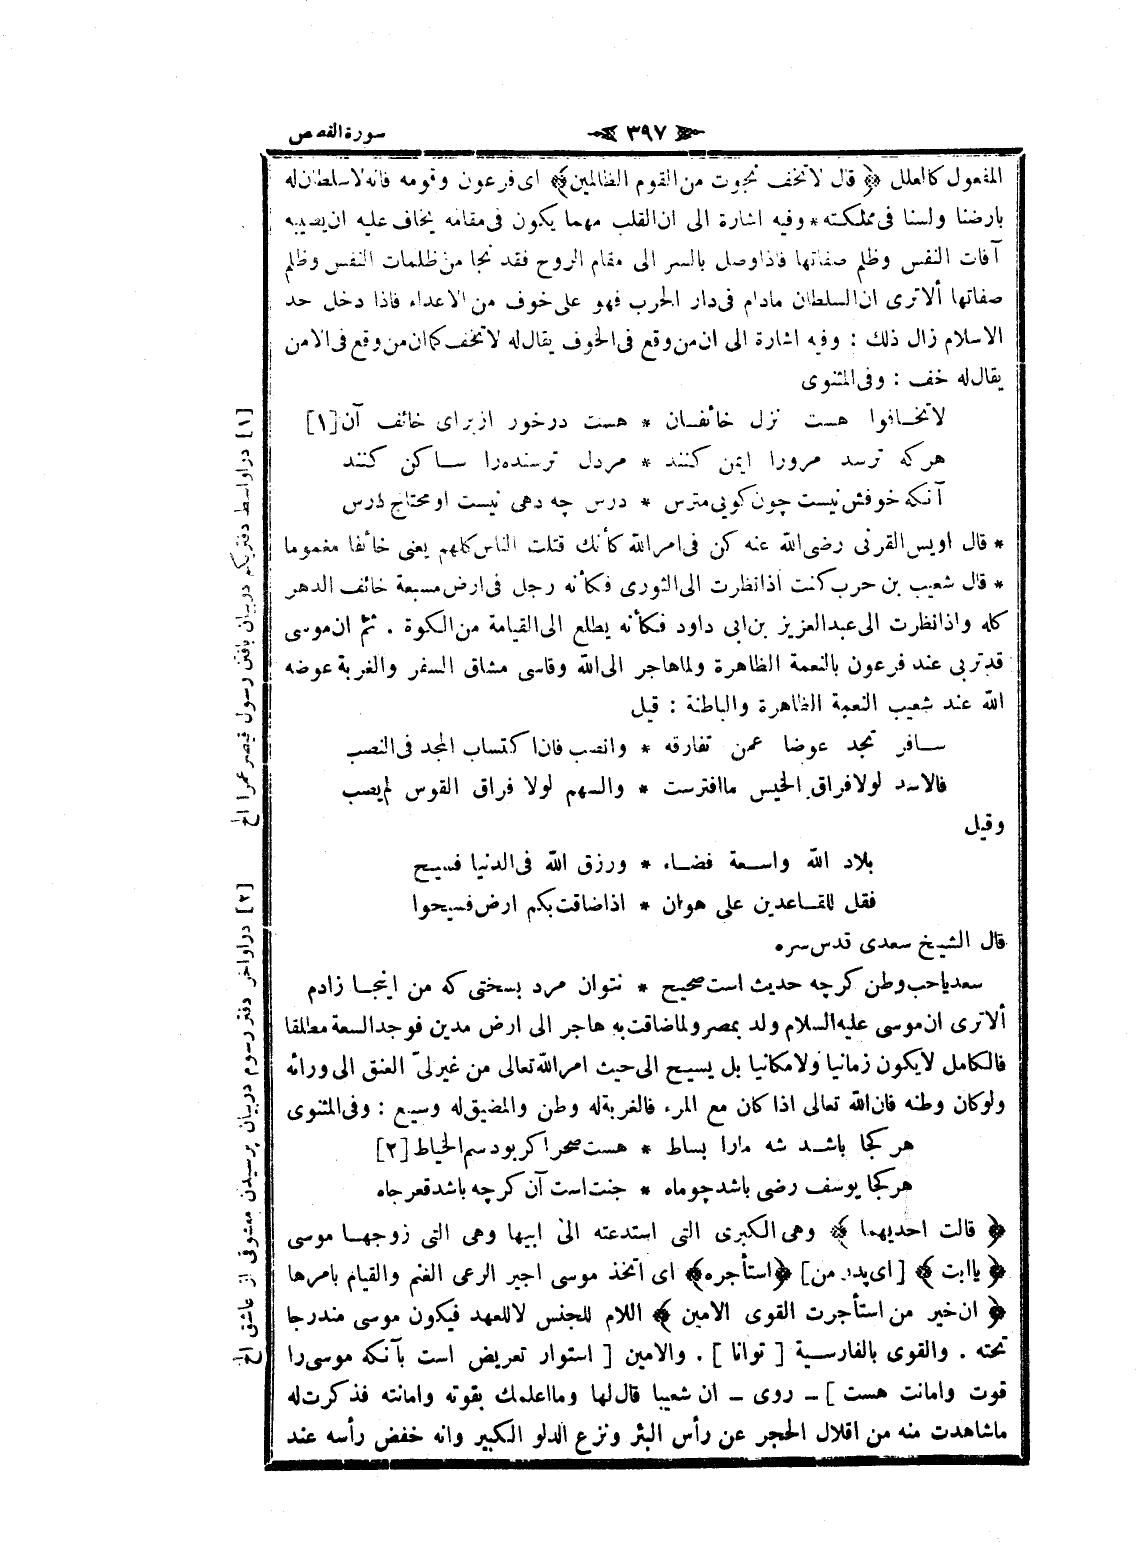 سورة القصص
﴿ ٣٩٧ ﴾
المفعول كالعلل ﴿ قال لاتخف نجوت من القوم الظالمين ﴾ اى فرعون وقومه فانه لاسلطان له
بارضنا ولسنا فى مملكته * وفيه اشارة الى ان القلب مهما يكون فى مقامه يخاف عليه ان يصيبه
آفات النفس وظلم صفاتها فاذا وصل بالسر الى مقام الروح فقد نجا من ظلمات النفس وظلم
صفاتها ألا ترى ان السلطان مادام فى دار الحرب فهو على خوف من الاعداء فاذا دخل حد
الاسلام زال ذلك : وفيه اشارة الى ان من وقع فى الخوف يقال له لاتخف كما ان من وقع فى الامن
يقال له خف : وفى المثنوى
لاتخافوا هست نزل خائفان * هست درخور از براى خائف آن [١]
هركه ترسد مرورا ايمن كنند * مردل ترسنده را ساكن كنند
آنكه خوفش نيست چون كويى مترس * درس چه دهى نيست او محتاج درس
* قال اويس القرنى رضى الله عنه كن فى امر الله كأنك قتلت الناس كلهم يعنى خائفا مغموما
* قال شعيب بن حرب كنت اذا نظرت الى الثورى فكأنه رجل فى ارض مسبعة خائف الدهر
كله واذا نظرت الى عبد العزيز بن ابى داود فكأنه يطلع الى القيامة من الكوة . ثم ان موسى
قد تربى عند فرعون بالنعمة الظاهرة ولما هاجر الى الله وقاسى مشاق السفر والغربة عوضه
الله عند شعيب النعمة الظاهرة والباطنة : قيل
سافر تجد عوضا عمن تفارقه * وانصب فان اكتساب المجد فى النصب
فالاسد لولا فراق الخيس ماافترست * والسهم لولا فراق القوس لم يصب
وقيل
بلاد الله واسعة فضاء * ورزق الله فى الدنيا فسيح
فقل للقاعدين على هوان * اذا ضاقت بكم ارض فسيحوا
قال الشيخ سعدى قدس سره
سعديا حب وطن كرچه حديث است صحيح * نتوان مرد بسختى كه من اينجا زادم
ألا ترى ان موسى عليه السلام ولد بمصر ولما ضاقت به هاجر الى ارض مدين فوجد السعة مطلقا
فالكامل لايكون زمانيا ولا مكانيا بل يسيح الى حيث امر الله تعالى من غير لىّ العنق الى ورائه
ولوكان وطنه فان الله تعالى اذا كان مع المرء فالغربة له وطن والمضيق له وسيع : وفى المثنوى
هركجا باشد شه مارا بساط * هست صحرا كر بود سم الخياط [٢]
هركجا يوسف رخى باشد چو ماه * جنت است آن كرچه باشد قعر چاه
﴿ قالت احديهما ﴾ وهى الكبرى التى استدعته الى ابيها وهى التى زوجها موسى
﴿ ياابت ﴾ [ اى پدر من ] ﴿ استأجره ﴾ اى اتخذ موسى اجير الرعى الغنم والقيام بامرها
﴿ ان خير من استأجرت القوى الامين ﴾ اللام للجنس لا للعهد فيكون موسى مندرجا
تحته . والقوى بالفارسية [ توانا ] . والامين [ استوار تعريض است بآنكه موسى را
قوت وامانت هست ] ـ روى ـ ان شعيبا قال لها ومااعلمك بقوته وامانته فذكرت له
ماشاهدت منه من اقلال الحجر عن رأس البئر ونزع الدلو الكبير وانه خفض رأسه عند
[١] در اواسط دفتر يكم در بيان يافتن رسول قيصر عمر را الخ
[٢] در اواخر دفتر سوم در بيان پرسيدن معشوقى از عاشق الخ